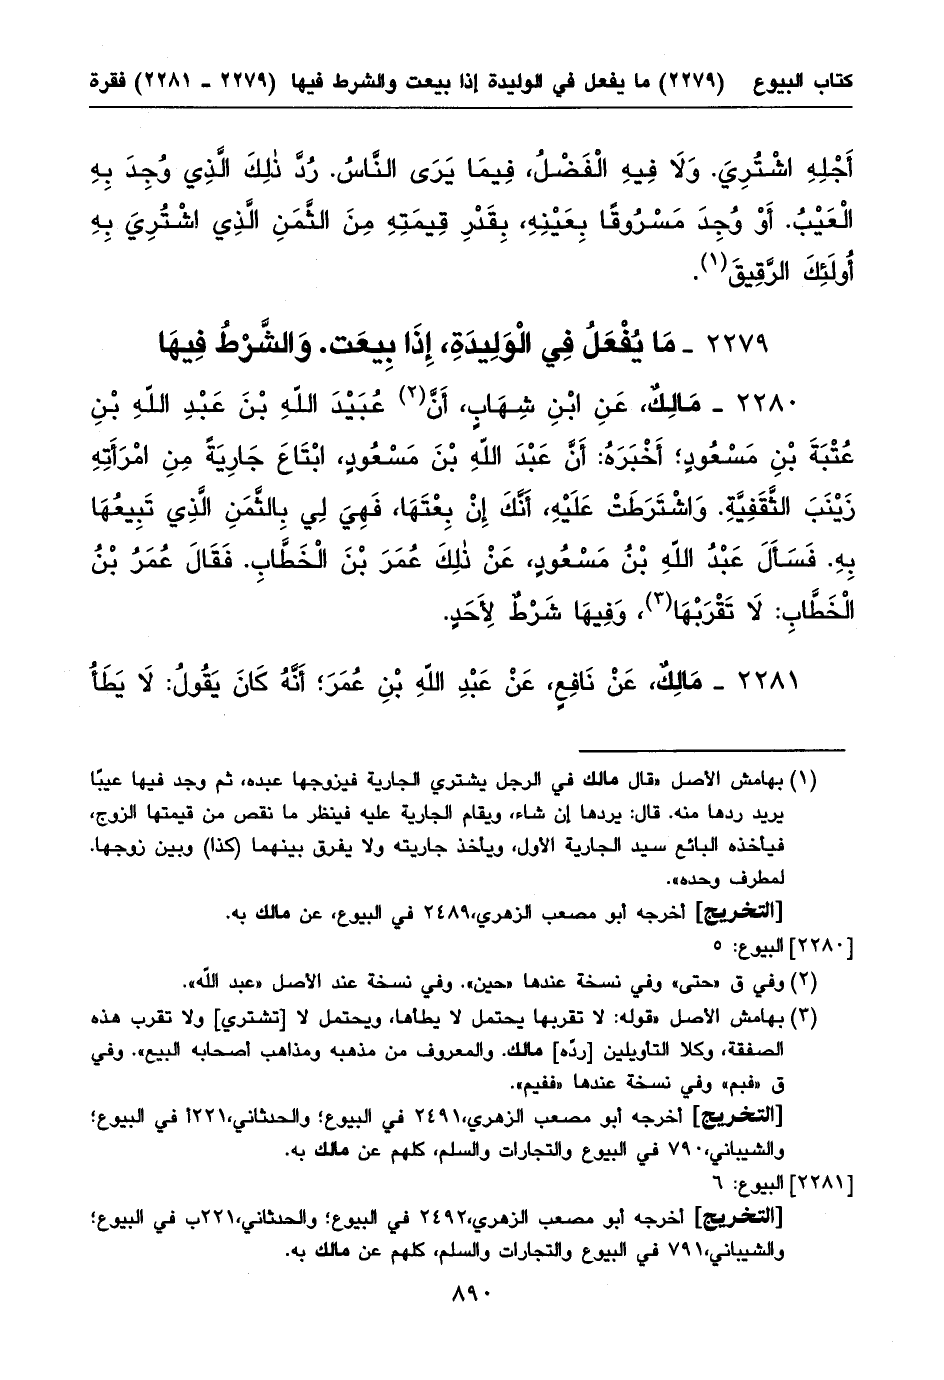 كتاب البيوع (٢٢٧٩) ما يفعل في الوليدة إذا بيعت والشرط فيها (٢٢٧٩ - ٢٢٨١) فقرة
أَجْلِهِ اشْتُرِيَ. وَلَا فِيهِ الْفَضْلُ، فِيمَا يَرَى النَّاسُ. رُدَّ ذٰلِكَ الَّذِي وُجِدَ بِهِ
الْعَيْبُ. أَوْ وُجِدَ مَسْرُوقًا بِعَيْنِهِ، بِقَدْرِ قِيمَتِهِ مِنَ الثَّمَنِ الَّذِي اشْتُرِيَ بِهِ
أُولَئِكَ الرَّقِيقَ(١).
٢٢٧٩ - مَا يُفْعَلُ فِي الْوَلِيدَةِ، إِذَا بِيعَت. وَالشَّرْطُ فِيهَا
٢٢٨٠ - مَالِكٌ، عَنِ ابْنِ شِهَابٍ، أَنَّ(٢) عُبَيْدَ اللهِ بْنَ عَبْدِ اللهِ بْنِ
عُتْبَةَ بْنِ مَسْعُودٍ؛ أَخْبَرَهُ: أَنَّ عَبْدَ اللهِ بْنَ مَسْعُودٍ، ابْتَاعَ جَارِيَةً مِنِ امْرَأَتِهِ
زَيْنَبَ الثَّقَفِيَّةِ. وَاشْتَرَطَتْ عَلَيْهِ، أَنَّكَ إِنْ بِعْتَهَا، فَهِيَ لِي بِالثَّمَنِ الَّذِي تَبِيعُهَا
بِهِ. فَسَأَلَ عَبْدُ اللهِ بْنُ مَسْعُودٍ، عَنْ ذٰلِكَ عُمَرَ بْنَ الْخَطَّابِ. فَقَالَ عُمَرُ بْنُ
الْخَطَّابِ: لَا تَقْرَبْهَا(٣)، وَفِيهَا شَرْطٌ لِأَحَدٍ.
٢٢٨١ - مَالِكٌ، عَنْ نَافِعٍ، عَنْ عَبْدِ اللهِ بْنِ عُمَرَ؛ أَنَّهُ كَانَ يَقُولُ: لَا يَطَأُ
(١) بهامش الأصل «قال مالك في الرجل يشتري الجارية فيزوجها عبده، ثم وجد فيها عيبًا
يريد ردها منه. قال: يردها إن شاء، ويقام الجارية عليه فينظر ما نقص من قيمتها الزوج،
فيأخذه البائع سيد الجارية الأول، ويأخذ جاريته ولا يفرق بينهما (كذا) وبين زوجها.
لمطرف وحده».
[التخريج] أخرجه أبو مصعب الزهري،٢٤٨٩ في البيوع، عن مالك به.
[٢٢٨٠] البيوع: ٥
(٢) وفي ق «حتى» وفي نسخة عندها «حين». وفي نسخة عند الأصل «عبد الله».
(٣) بهامش الأصل «قوله: لا تقربها يحتمل لا يطأها، ويحتمل لا [تشتري] ولا تقرب هذه
الصفقة، وكلا التأويلين [ردّه] مالك. والمعروف من مذهبه ومذاهب أصحابه البيع». وفي
ق «فبم» وفي نسخة عندها «ففيم».
[التخريج] أخرجه أبو مصعب الزهري،٢٤٩١ في البيوع؛ والحدثاني،٢٢١أ في البيوع؛
والشيباني،٧٩٠ في البيوع والتجارات والسلم، كلهم عن مالك به.
[٢٢٨١] البيوع: ٦
[التخريج] أخرجه أبو مصعب الزهري،٢٤٩٢ في البيوع؛ والحدثاني،٢٢١ب في البيوع؛
والشيباني،٧٩١ في البيوع والتجارات والسلم، كلهم عن مالك به.
٨٩٠